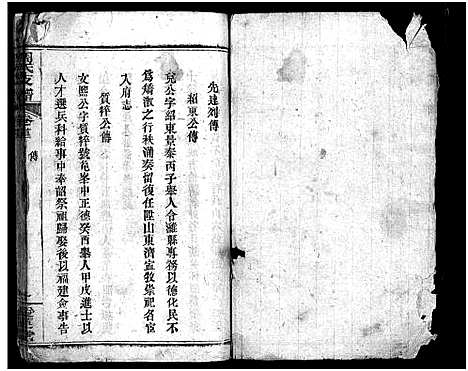 先達列傳
紹東公傳
兒公字紹東景泰丙子舉人令濰縣專務以德化民不
為矯激之行秩滿奏留復任陞山東濟寧牧崇祀名宦
入府志
質粹公傳
文熙公字質粹號龟峯中正德癸酉舉人甲戌進士以
人才選兵科給事中奉韶祭祖歸娶後以福建僉事告
支譜
傳